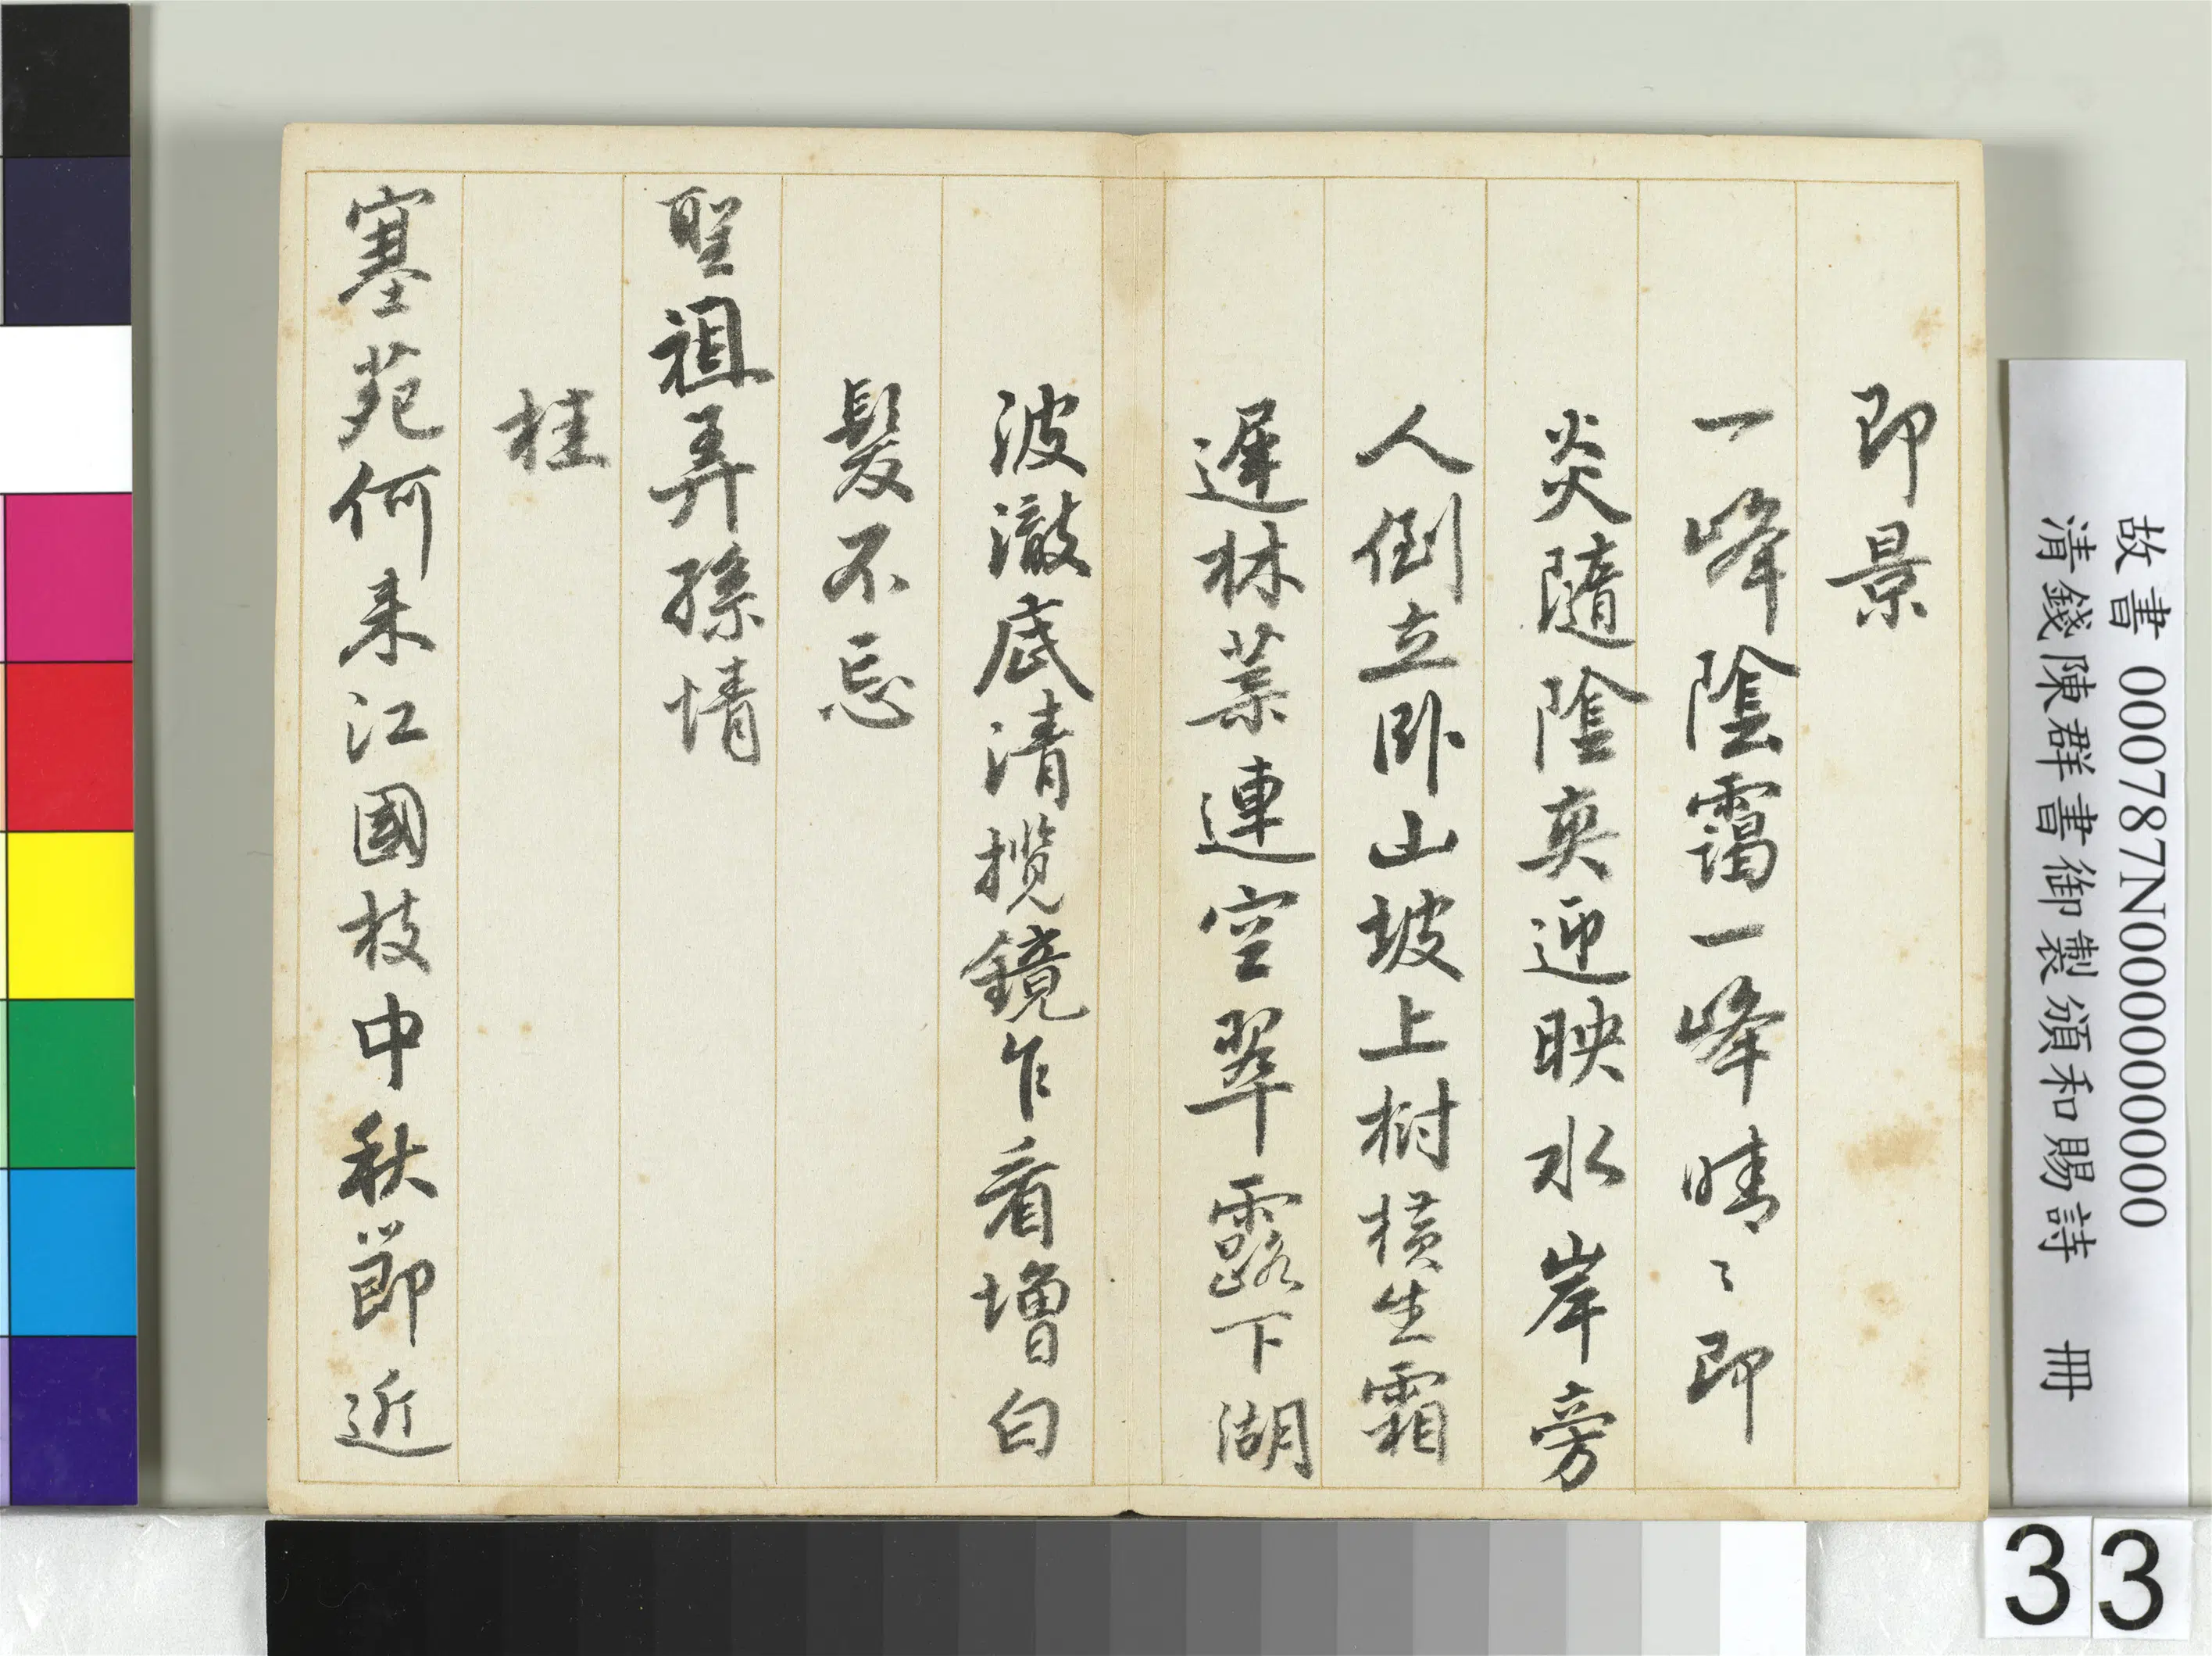 即景
一峰陰靄一峰晴〻即
炎隨陰爽迎映水岸旁
人倒立臥山坡上樹橫生霜
遲林葉連空翠露下湖
波澈底清攬鏡乍看增白
髮不忘
聖祖弄孫情
桂
塞苑何来江國枝中秋節近
故書 000787N000000000
清錢陳群書御製頒和賜詩 冊
33